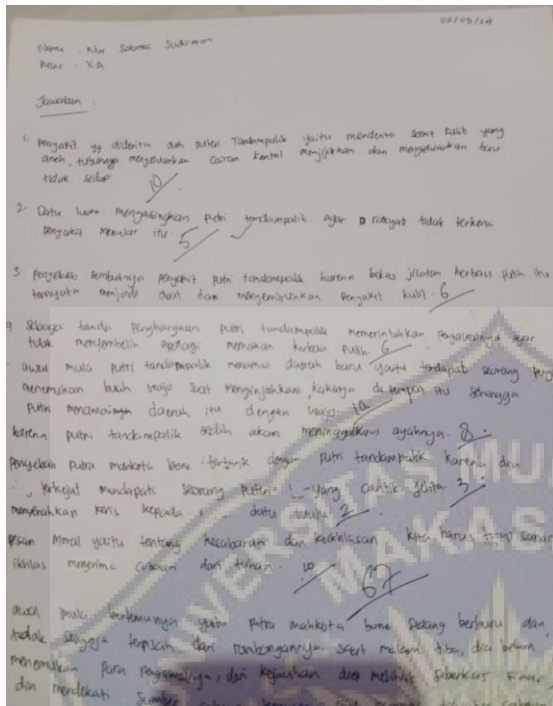 02/09/24
Nama : Nur Sudirman
Kelas : X.A
Jawaban :
1. Penyakit yg diderita oleh puteri Tandampalik yaitu menderita kulit yang
aneh, tubuhnya mengeluarkan cairan kental menjijikkan dan mengeluarkan bau
tidak sedap
10
2. Datu luwu mengasingkan putri tandampalik agar rakyat tidak terkena
penyakit menular itu. 5
3. Penyebab sembuhnya penyakit putri tandampalik karena bekas jilatan kerbau putih itu
ternyata menjadi obat dan menyembuhkan penyakit kulit. 6
Sebagai tanda penghargaan putri tandampalik memerintahkan pengawalnya agar
tidak menyembelih apalagi memakan kerbau putih. 6
awal mula putri tandampalik menamai daerah baru yaitu terdapat seorang
menemukan buah wajo saat menginjakkan kakinya di tempat itu sehingga
putri menamainya daerah itu dengan wajo. 10
karena putri tandampalik sedih akan meninggalkan ayahnya. 8
penyebab putra mahkota bone tertarik dengan putri tandampalik karena dia
terkejut mendapati seorang puteri yang cantik jelita 3
menyerahkan keris kepada datu luwu 2
pesan moral yaitu tentang kesabaran dan keikhlasan kita harus tetap sabar
ikhlas menerima cobaan dari tuhan. 10
67
awal mula bertemunya yaitu putra mahkota bone sedang berburu dan
tidak sengaja terpisah dari rombongannya saat malam tiba, dia belum
menemukan para pengawalnya, dari kejauhan dia melihat seberkas sinar
dia mendekati sumber
UNIVERSITAS MU
MAKAS